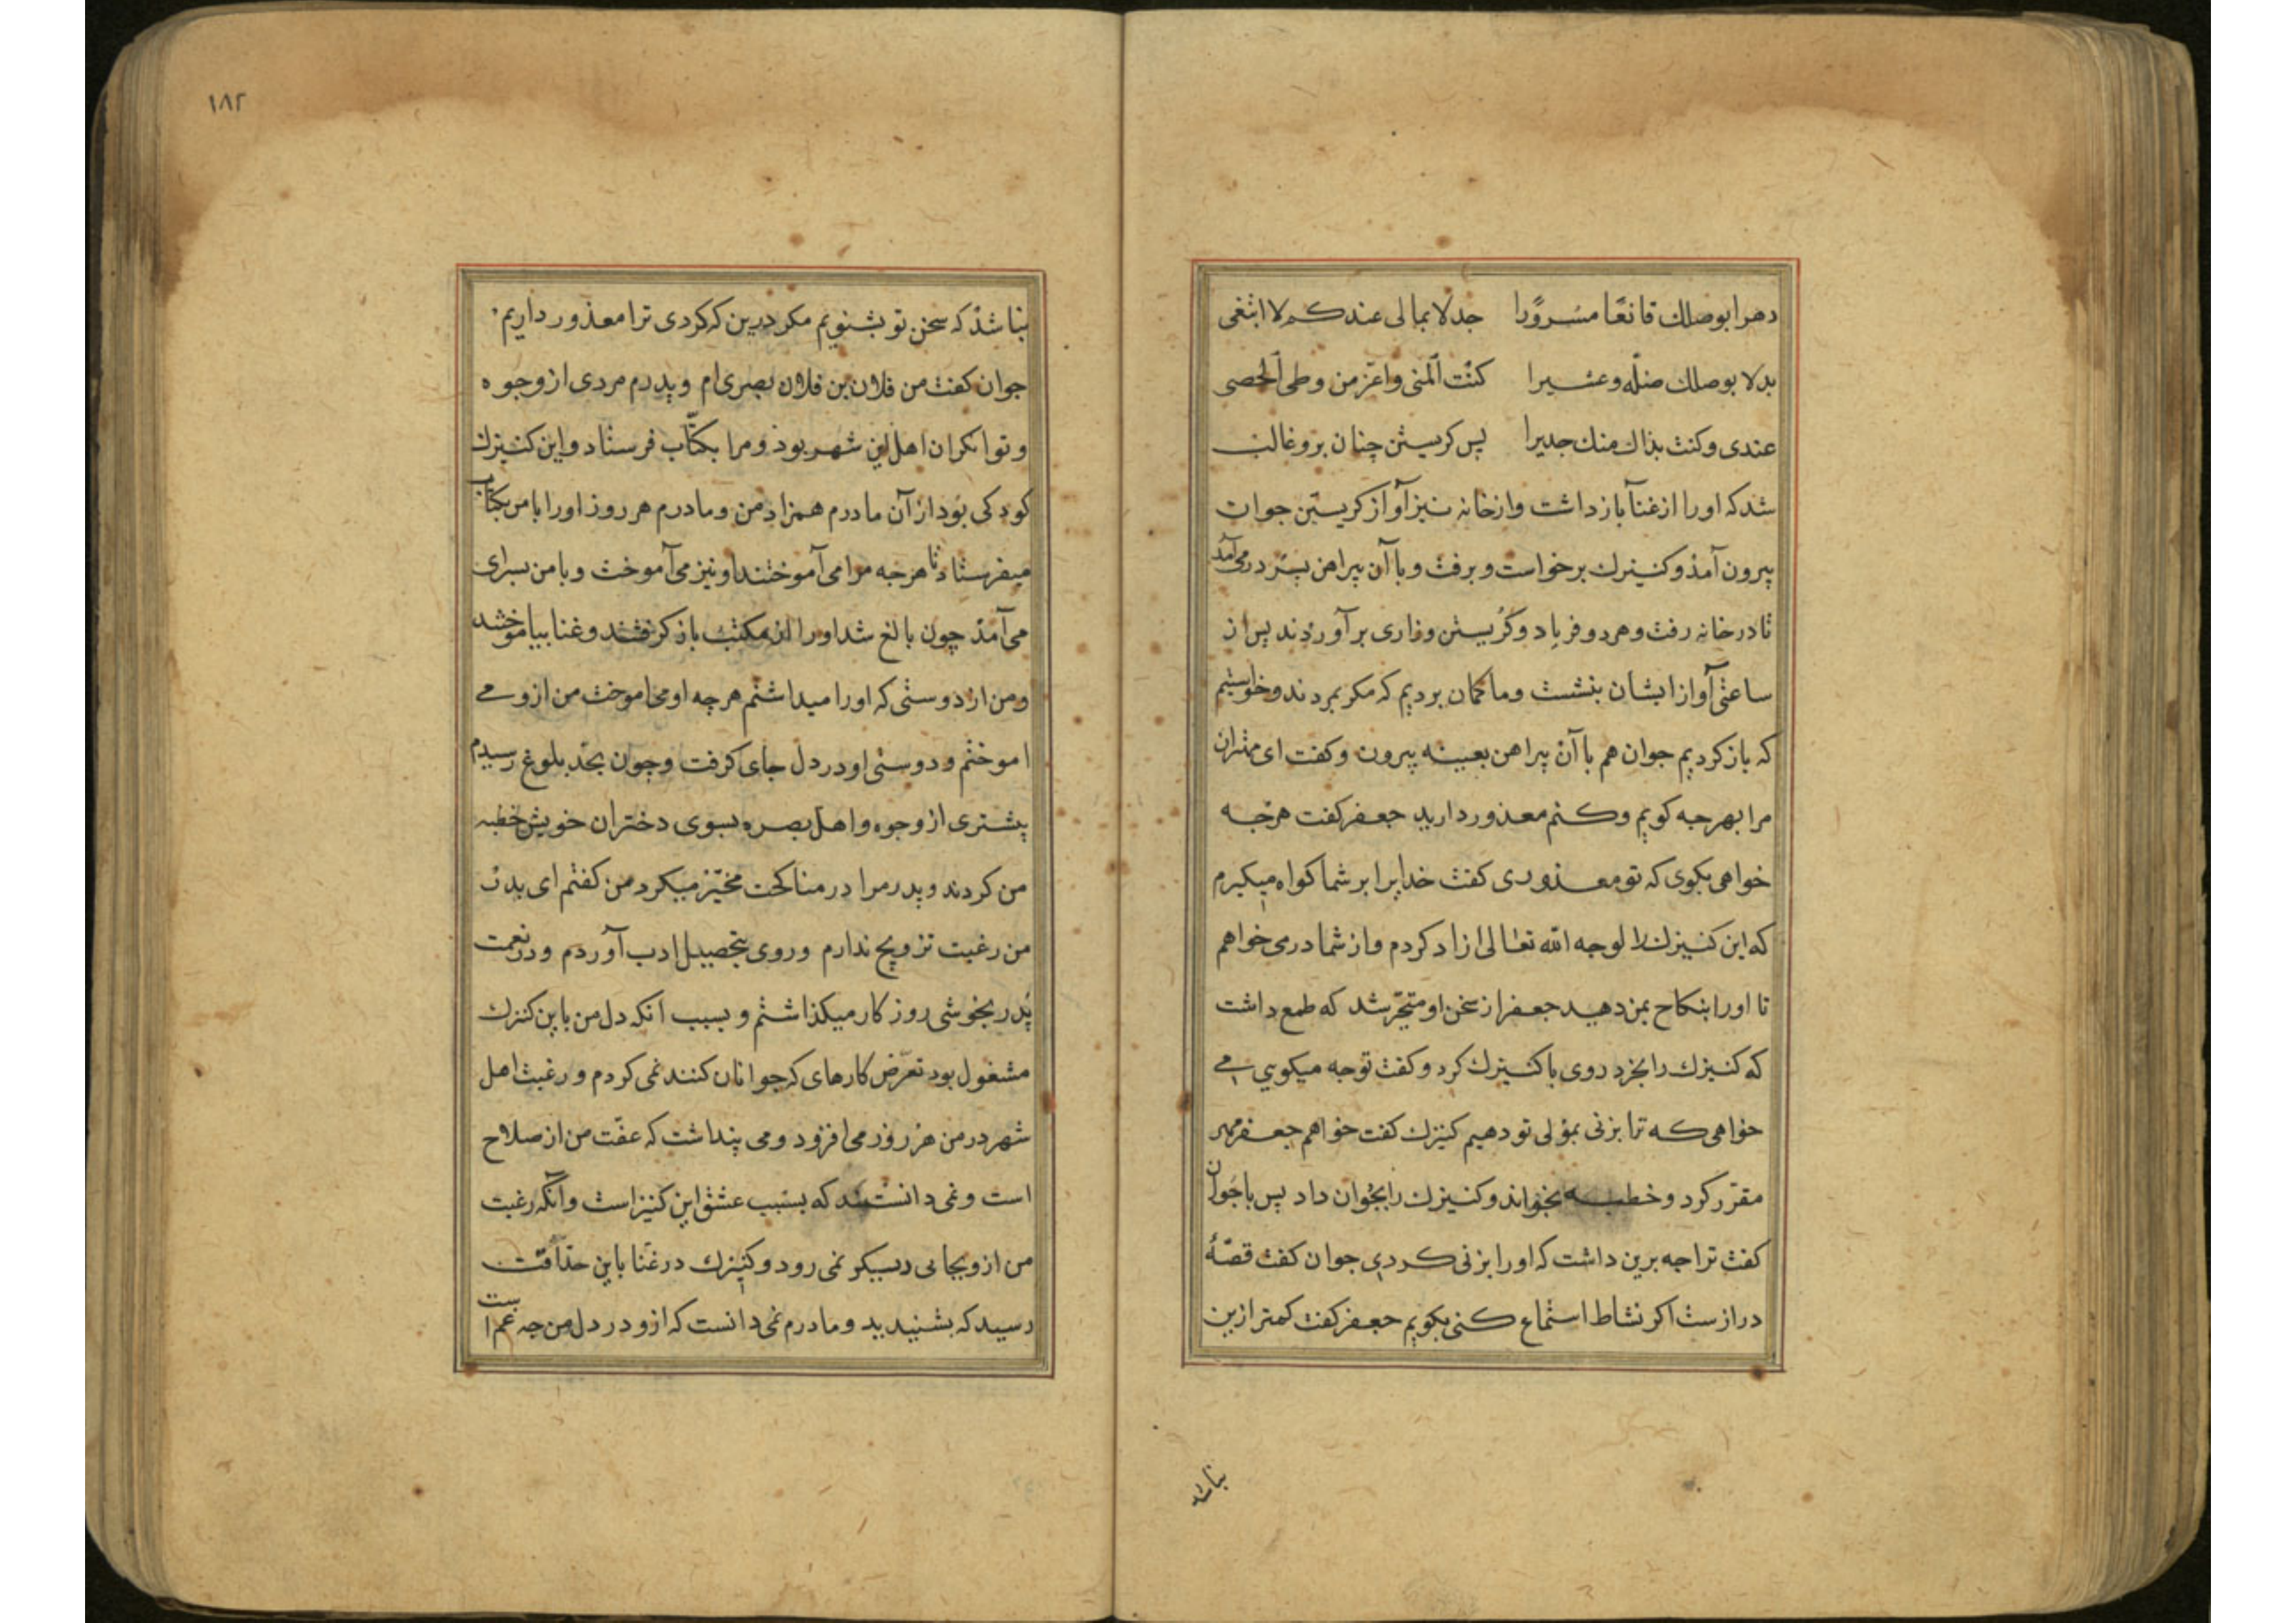 دهرا بوصلك قانعًا مسرورًا جدلا بمالى عندكم لا ابتغى
بدلا بوصلك ضلّه وعشيرا كنت المنى واعزّ من وطى الحصى
عندى وكنت بذاك منك جديرا پس كريستن چنان برو غالب
شد كه او را از غنا باز داشت واز خانه نيز آواز كريستن جوان
بيرون آمذ وكنيزك برخواست و برفت و با آن پيراهن پشتر در مى آمد
تا در خانه رفت و هر دو فرياد و كريستن و زارى بر آوردند پس از
ساعتى آواز ايشان بنشست و ما كمان برديم كه مكر بمردند و خواستيم
كه باز كرديم جوان هم با آن پيراهن بعينه بيرون و كفت اى مهتران
مرا بهرجه كويم و كنم معذور داريد جعفر كفت هرجه
خواهى بكوى كه تو معذورى كفت خدايرا بر شما كواه ميكيرم
كه اين كنيزك را لوجه الله تعالى ازاد كردم و از شما در مى خواهم
تا او را بنكاح بمن دهيد جعفر از سخن او متحيّر شد كه طمع داشت
كه كنيزك را بخرد روى با كنيزك كرد و كفت تو جه ميكويي مى
خواهى كه ترا بزنى بمولى تو دهيم كنيزك كفت خواهم جعفر مهر
مقرّر كرد و خطبه بخواند و كنيزك را بجوان داد پس با جوان
كفت ترا جه برين داشت كه او را بزنى كردى جوان كفت قصّهٔ
درازست اكر نشاط استماع كنى بكويم جعفر كفت كمتر ازين
نباشد
١٨٢
نباشذ كه سخن تو بشنويم مكر درين كه كردى ترا معذور داريم
جوان كفت من فلان بن فلان بصرى ام و پدرم مردى از وجوه
و توانكران اهل اين شهر بوذ و مرا بكتّاب فرستاد و اين كنيزك
كودكى بود از آن مادرم همزاد من و مادرم هر روز او را با من بكتاب
ميفرستاد تا هرجه مرا مى آموختند او نيز مى آموخت و با من بسراى
مى آمذ چون بالغ شد او را از مكتب باز كرفتند و غنا بياموختند
و من از دوستى كه او را ميداشتم هرچه او مى اموخت من ازو مى
اموختم و دوستى او در دل جاى كرفت و چون بحدّ بلوغ رسيدم
پشترى از وجوه و اهل بصره بسوى دختران خويش خطبه
من كردند و پدر مرا در مناكحت مخيّر ميكرد من كفتم اى پدر
من رغبت تزويج ندارم و روى بتحصيل ادب آوردم و در نعمت
پدر بخوشى روزكار ميكذاشتم و بسبب انكه دل من باين كنزك
مشغول بود تعرّض كارهاى كه جوانان كنند نمى كردم و رغبت اهل
شهر در من هر روز مى افزود و مى پنداشت كه عفّت من از صلاح
است و نمى دانستند كه بسبب عشق اين كنيز است و آنكه رغبت
من ازو بجاى ديكر نمى رود و كنيزك در غنا باين حذاقت
رسيد كه بشنيديد و مادرم نمى دانست كه ازو در دل من جه غم است